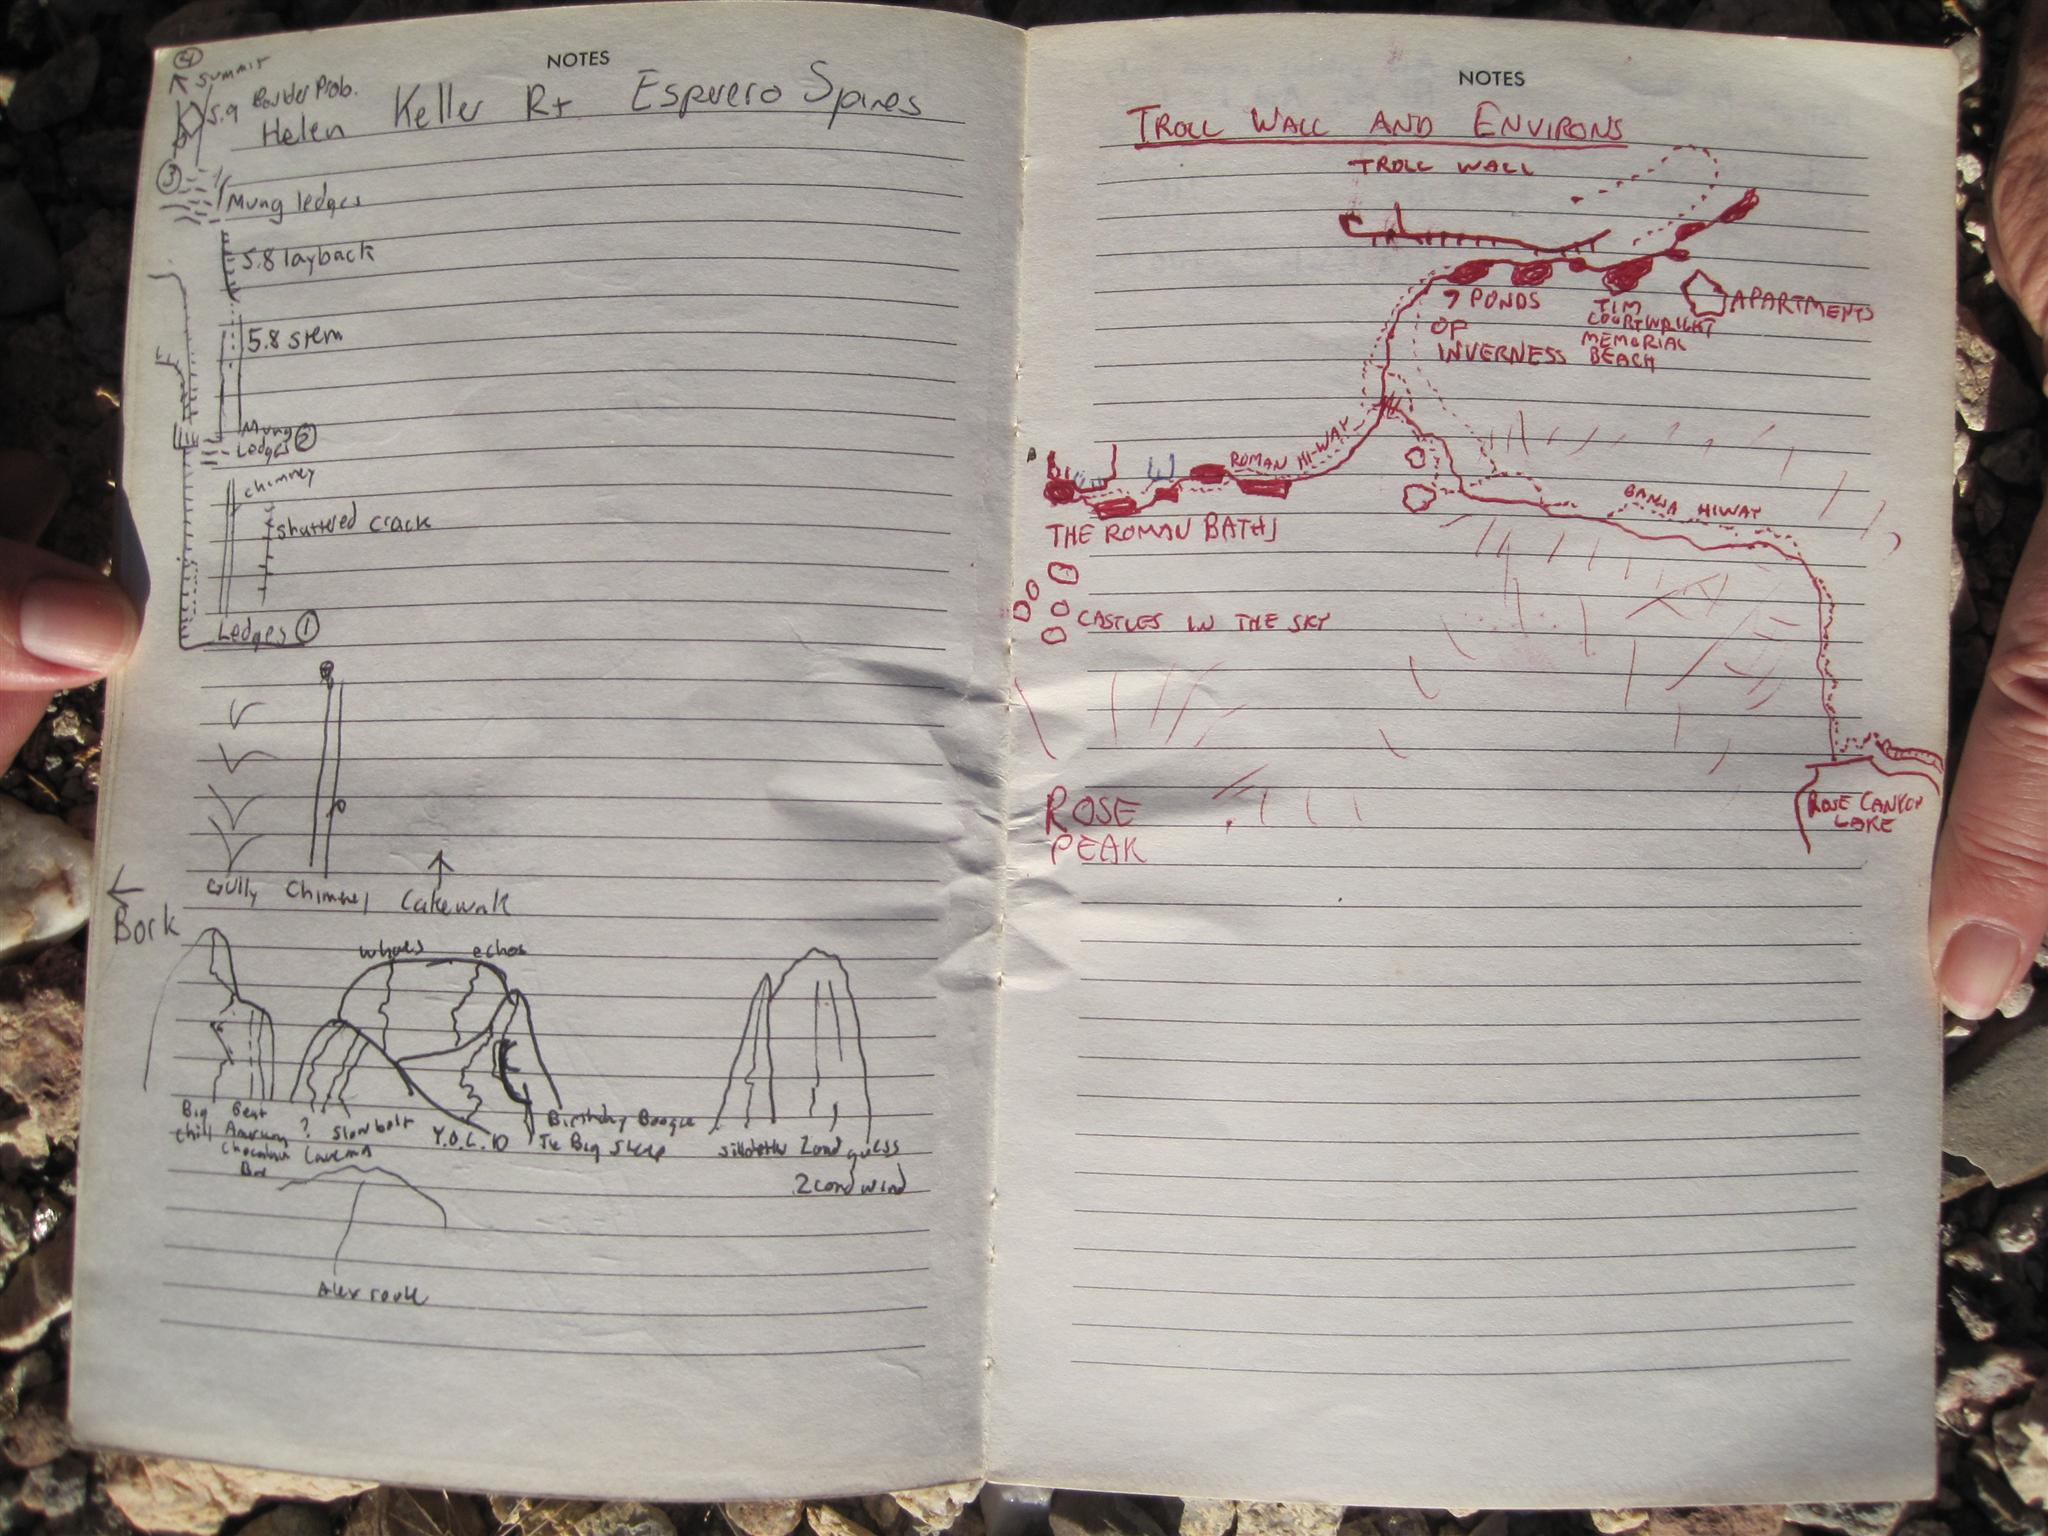 NOTES
④
Summit
5.9
Boulder Prob.
Helen Keller Rt Espuero Spires
③
Mung ledges
5.8 layback
5.8 stem
Mung
Ledges ②
chimney
shattered crack
Ledges ①
Gully Chimney Cakewalk
Bork
echos
Big
chill
?
slow bolt
Y.O.L. 10
Birthday Boogie
The Big Sleep
2cond guess
2cond wind
Alex route
NOTES
TROLL WALL AND ENVIRONS
TROLL WALL
7 PONDS
OF
INVERNESS
TIM
COURTWRIGHT
MEMORIAL
BEACH
APARTMENTS
ROMAN HI-WAY
HIWAY
THE ROMAN BATHS
CASTLES IN THE SKY
ROSE
PEAK
ROSE CANYON
LAKE